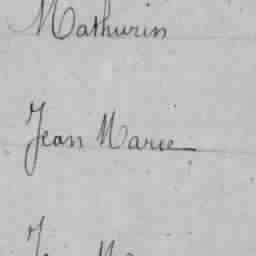 Mathurin
Jean Marie